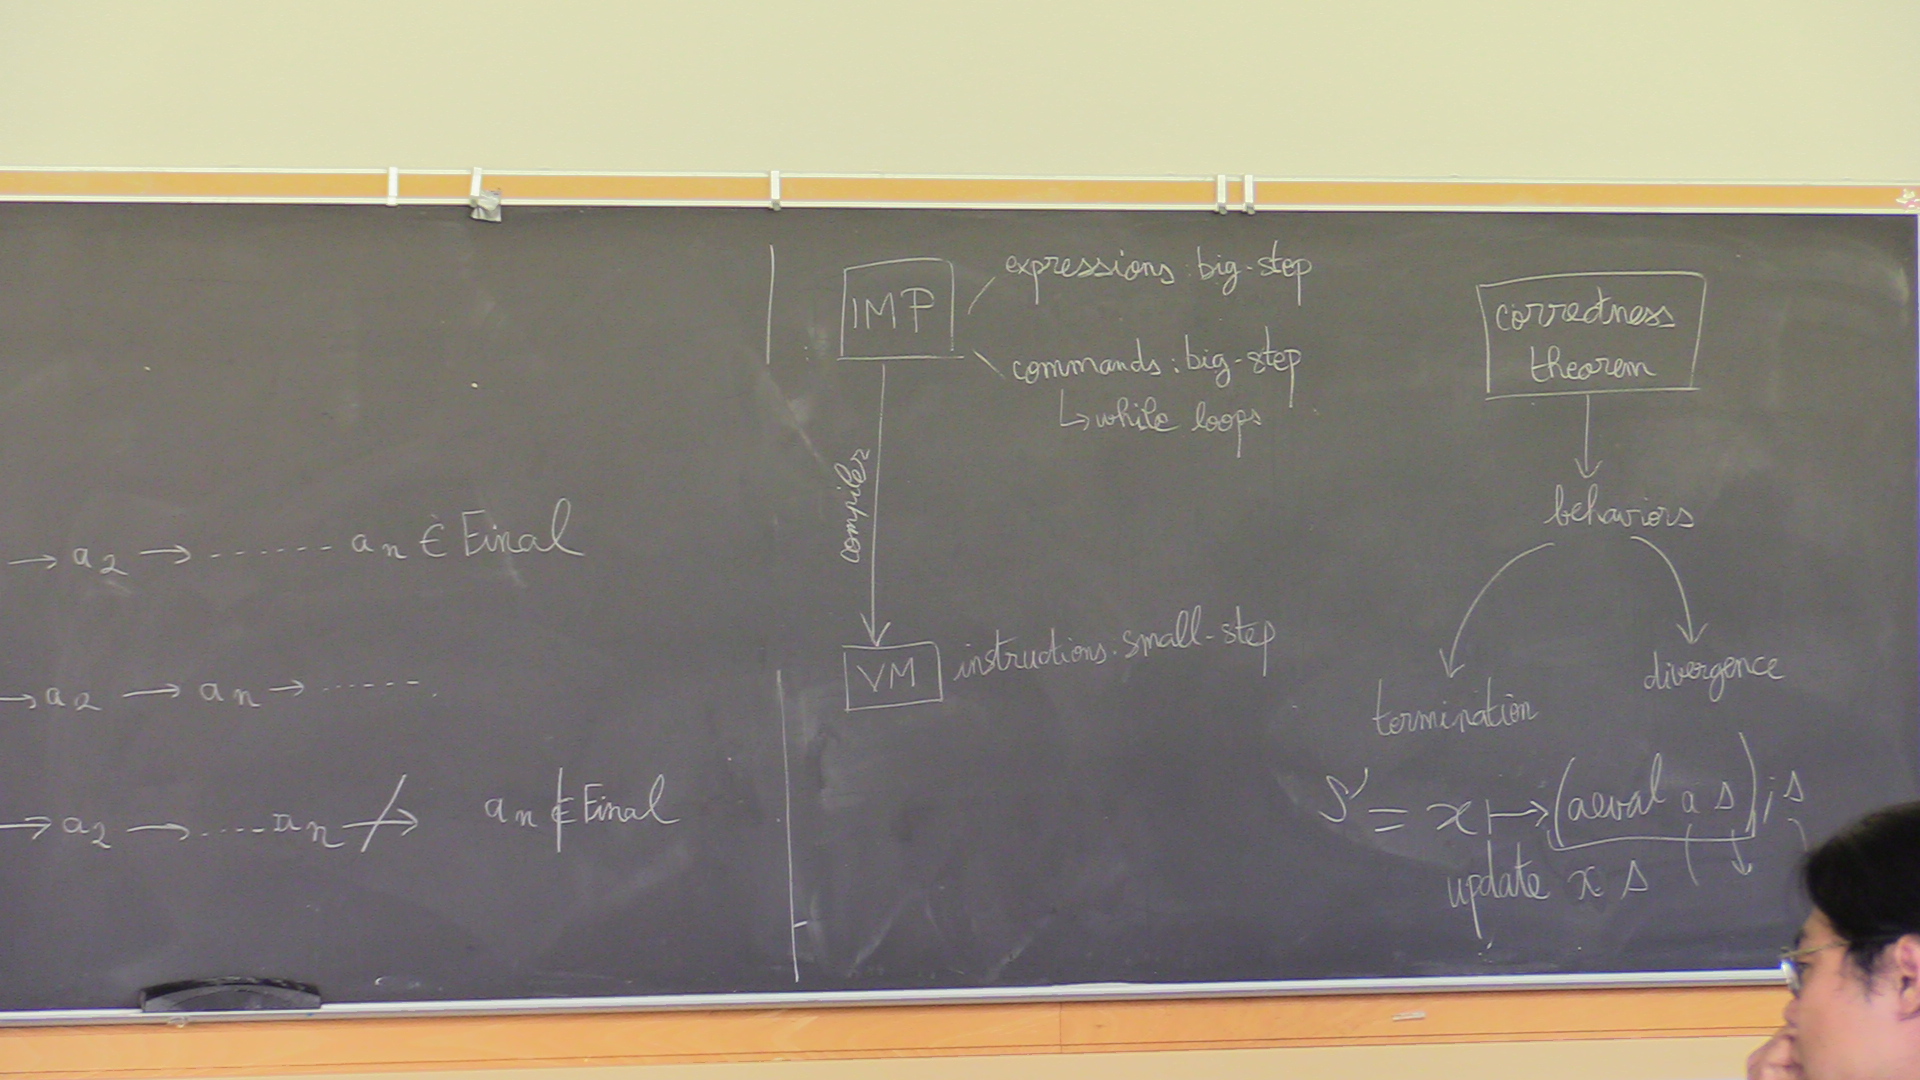 → a2 → ...... an ∈ Final
→ a2 → an → ......
→ a2 → .... an ↛ an ∉ Final
IMP
expressions : big-step
commands : big-step
↳ while loops
compiler
VM
instructions : small-step
correctness
theorem
behaviors
termination
divergence
s' = x ↦ (aeval a s) ; s
update x s